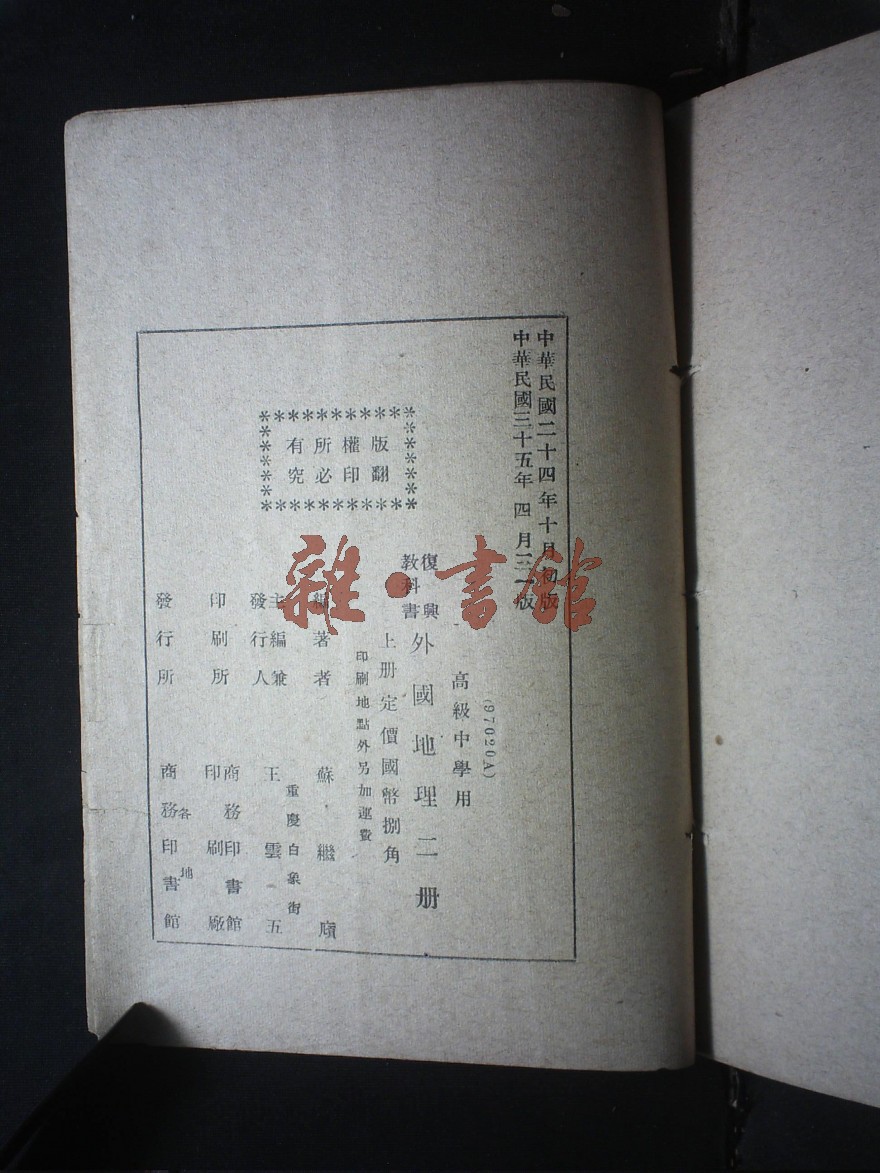 中華民國二十四年十月初版
中華民國三十五年四月三一版
(97020A)
高級中學用
復興
教科書
外國地理二册
上册定價國幣捌角
印刷地點外另加運費
版權所有
翻印必究
編著者 蘇繼廎
重慶白象街
主編兼
發行人 王雲五
印刷所 商務印書館
印刷廠
發行所 各地
商務印書館
雜·書館